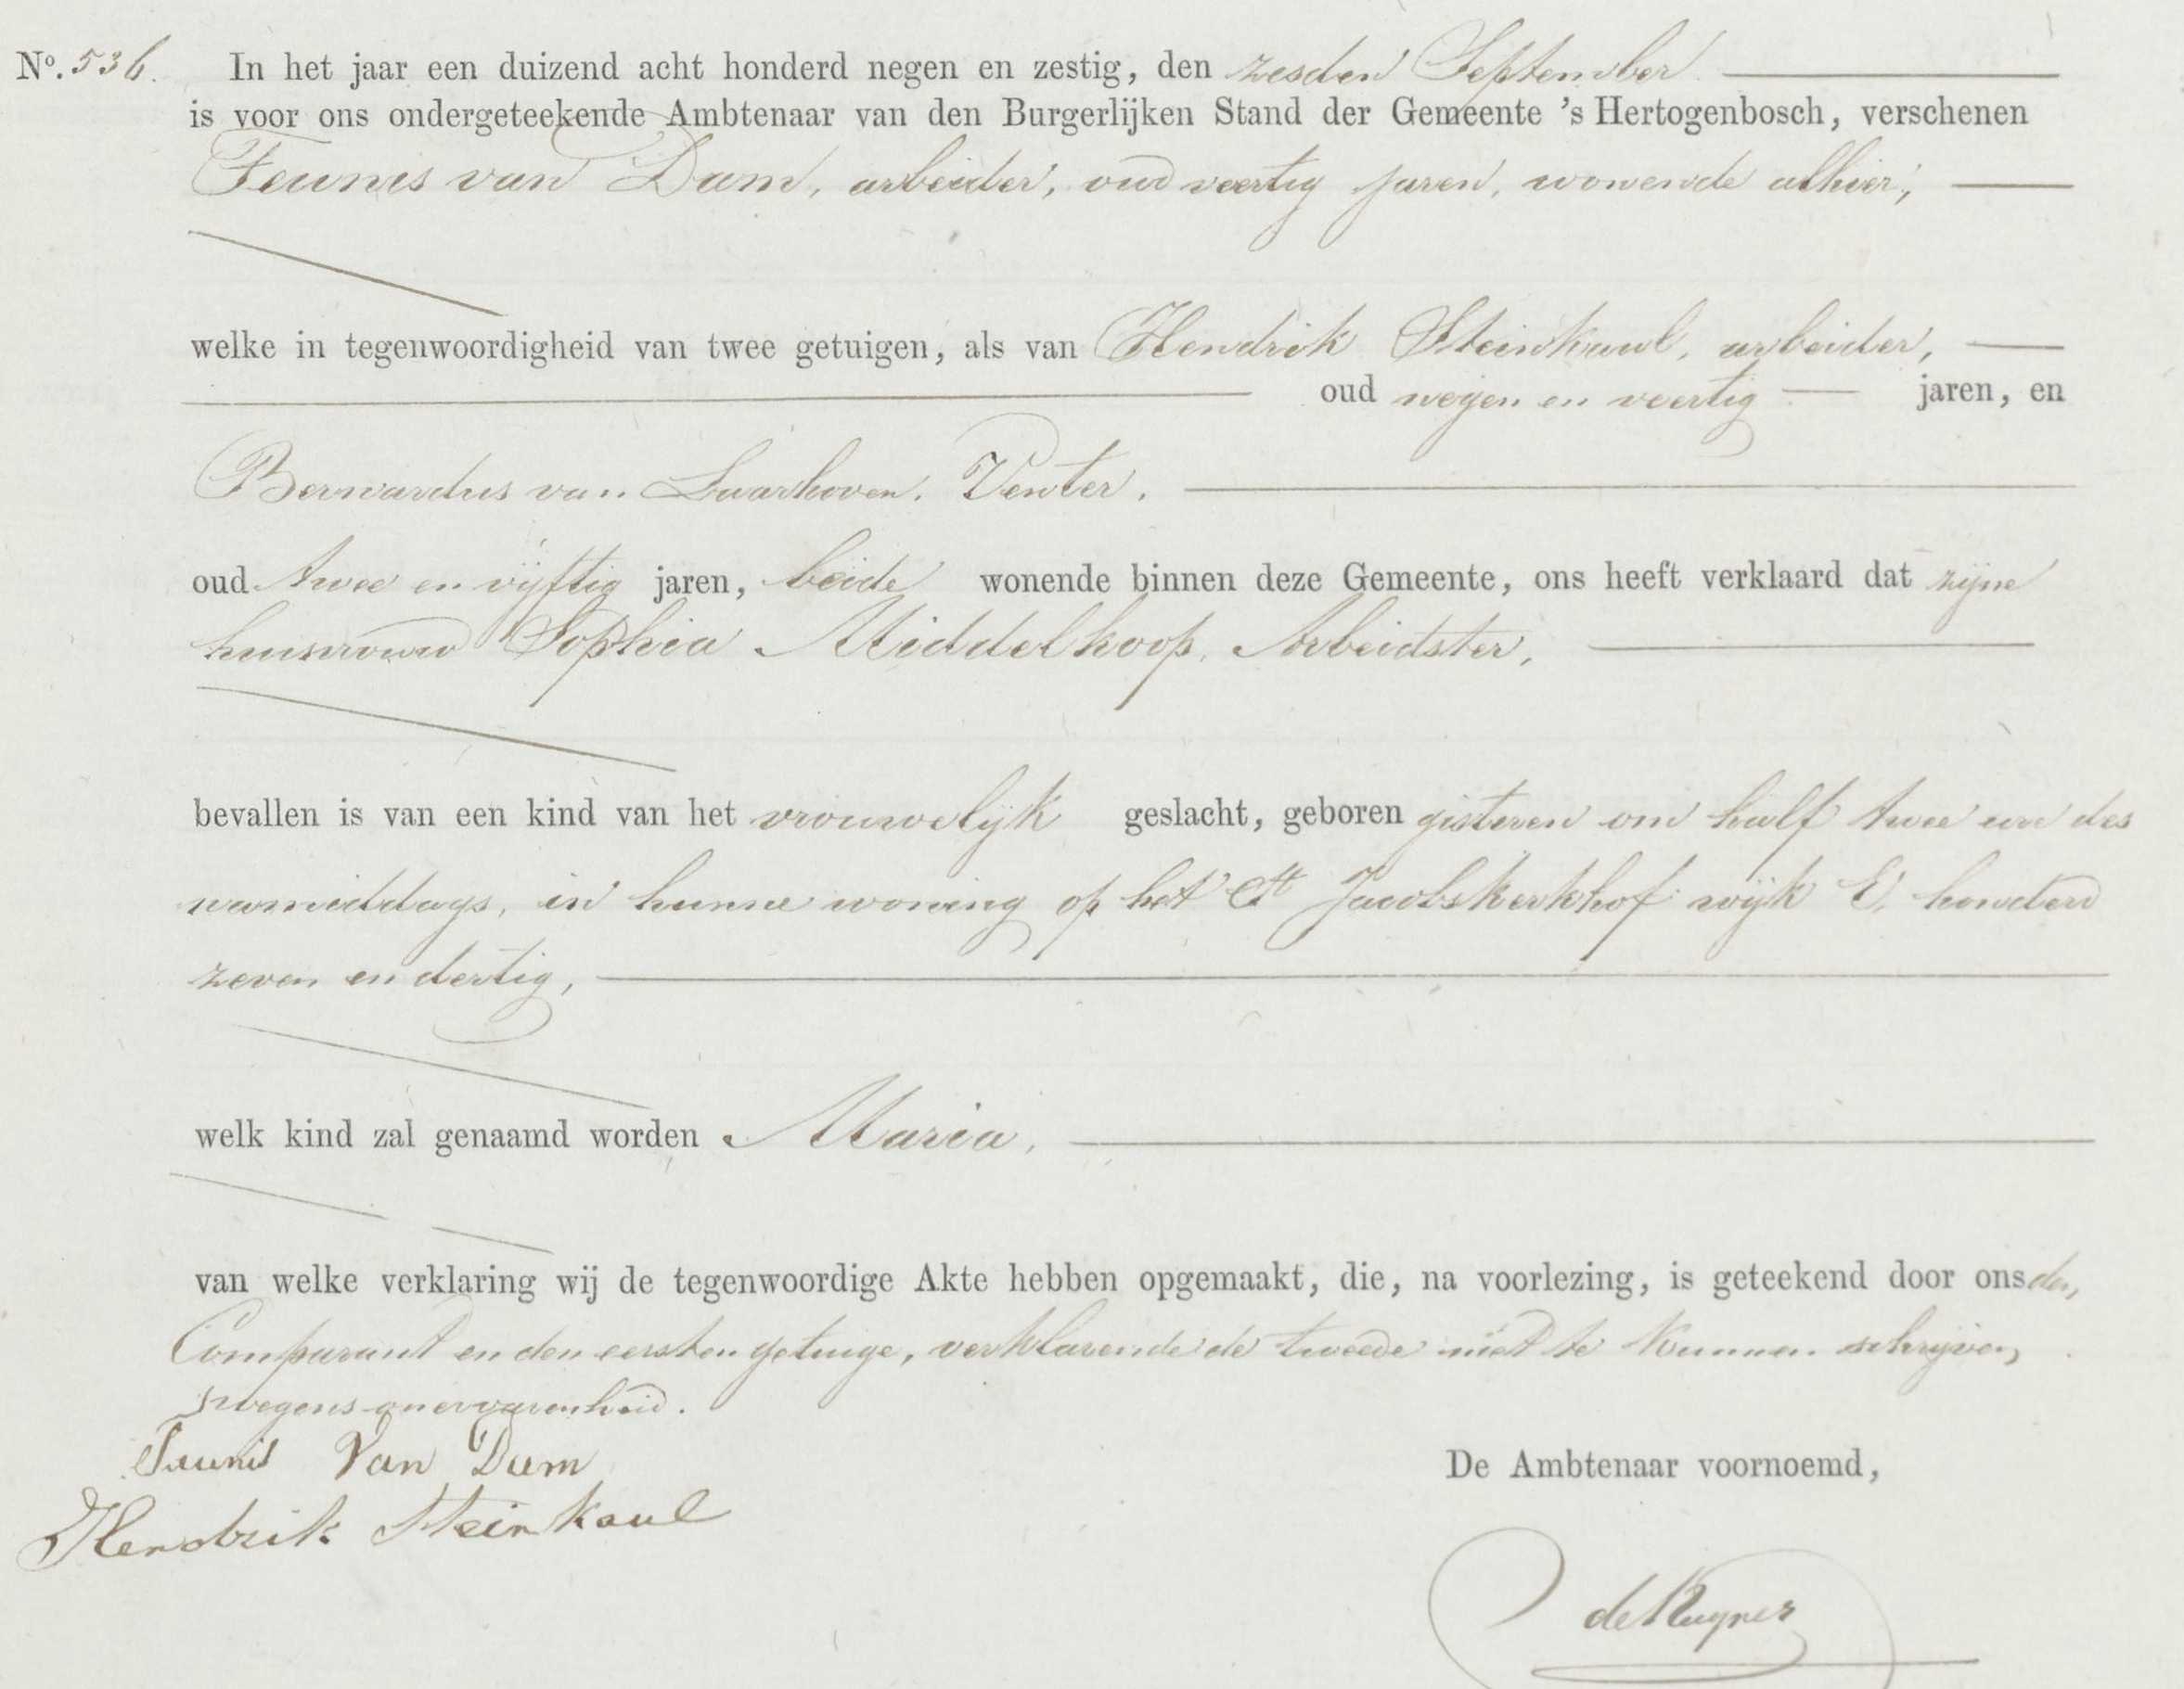 No. 536. In het jaar een duizend acht honderd negen en zestig, den zesden September
is voor ons ondergeteekende Ambtenaar van den Burgerlijken Stand der Gemeente 's Hertogenbosch, verschenen
Teunis van Dam, arbeider, oud veertig jaren, wonende alhier,
welke in tegenwoordigheid van twee getuigen, als van Hendrik Steinkaul, arbeider,
oud negen en veertig jaren, en
Bernardus van Laarhoven. Venter.
oud twee en vijftig jaren, beide wonende binnen deze Gemeente, ons heeft verklaard dat zijne
huisvrouw Sophia Middelkoop, Arbeidster,
bevallen is van een kind van het vrouwelijk geslacht, geboren gisteren om half twee ure des
namiddags, in hunne woning op het St Jacobskerkhof wijk E, honderd
zeven en dertig,
welk kind zal genaamd worden Maria,
van welke verklaring wij de tegenwoordige Akte hebben opgemaakt, die, na voorlezing, is geteekend door ons den
Comparant en den eersten getuige, verklarende de tweede niet te kunnen schrijven,
wegens onervarenheid.
Teunis Van Dam
De Ambtenaar voornoemd,
Hendrik Steinkaul